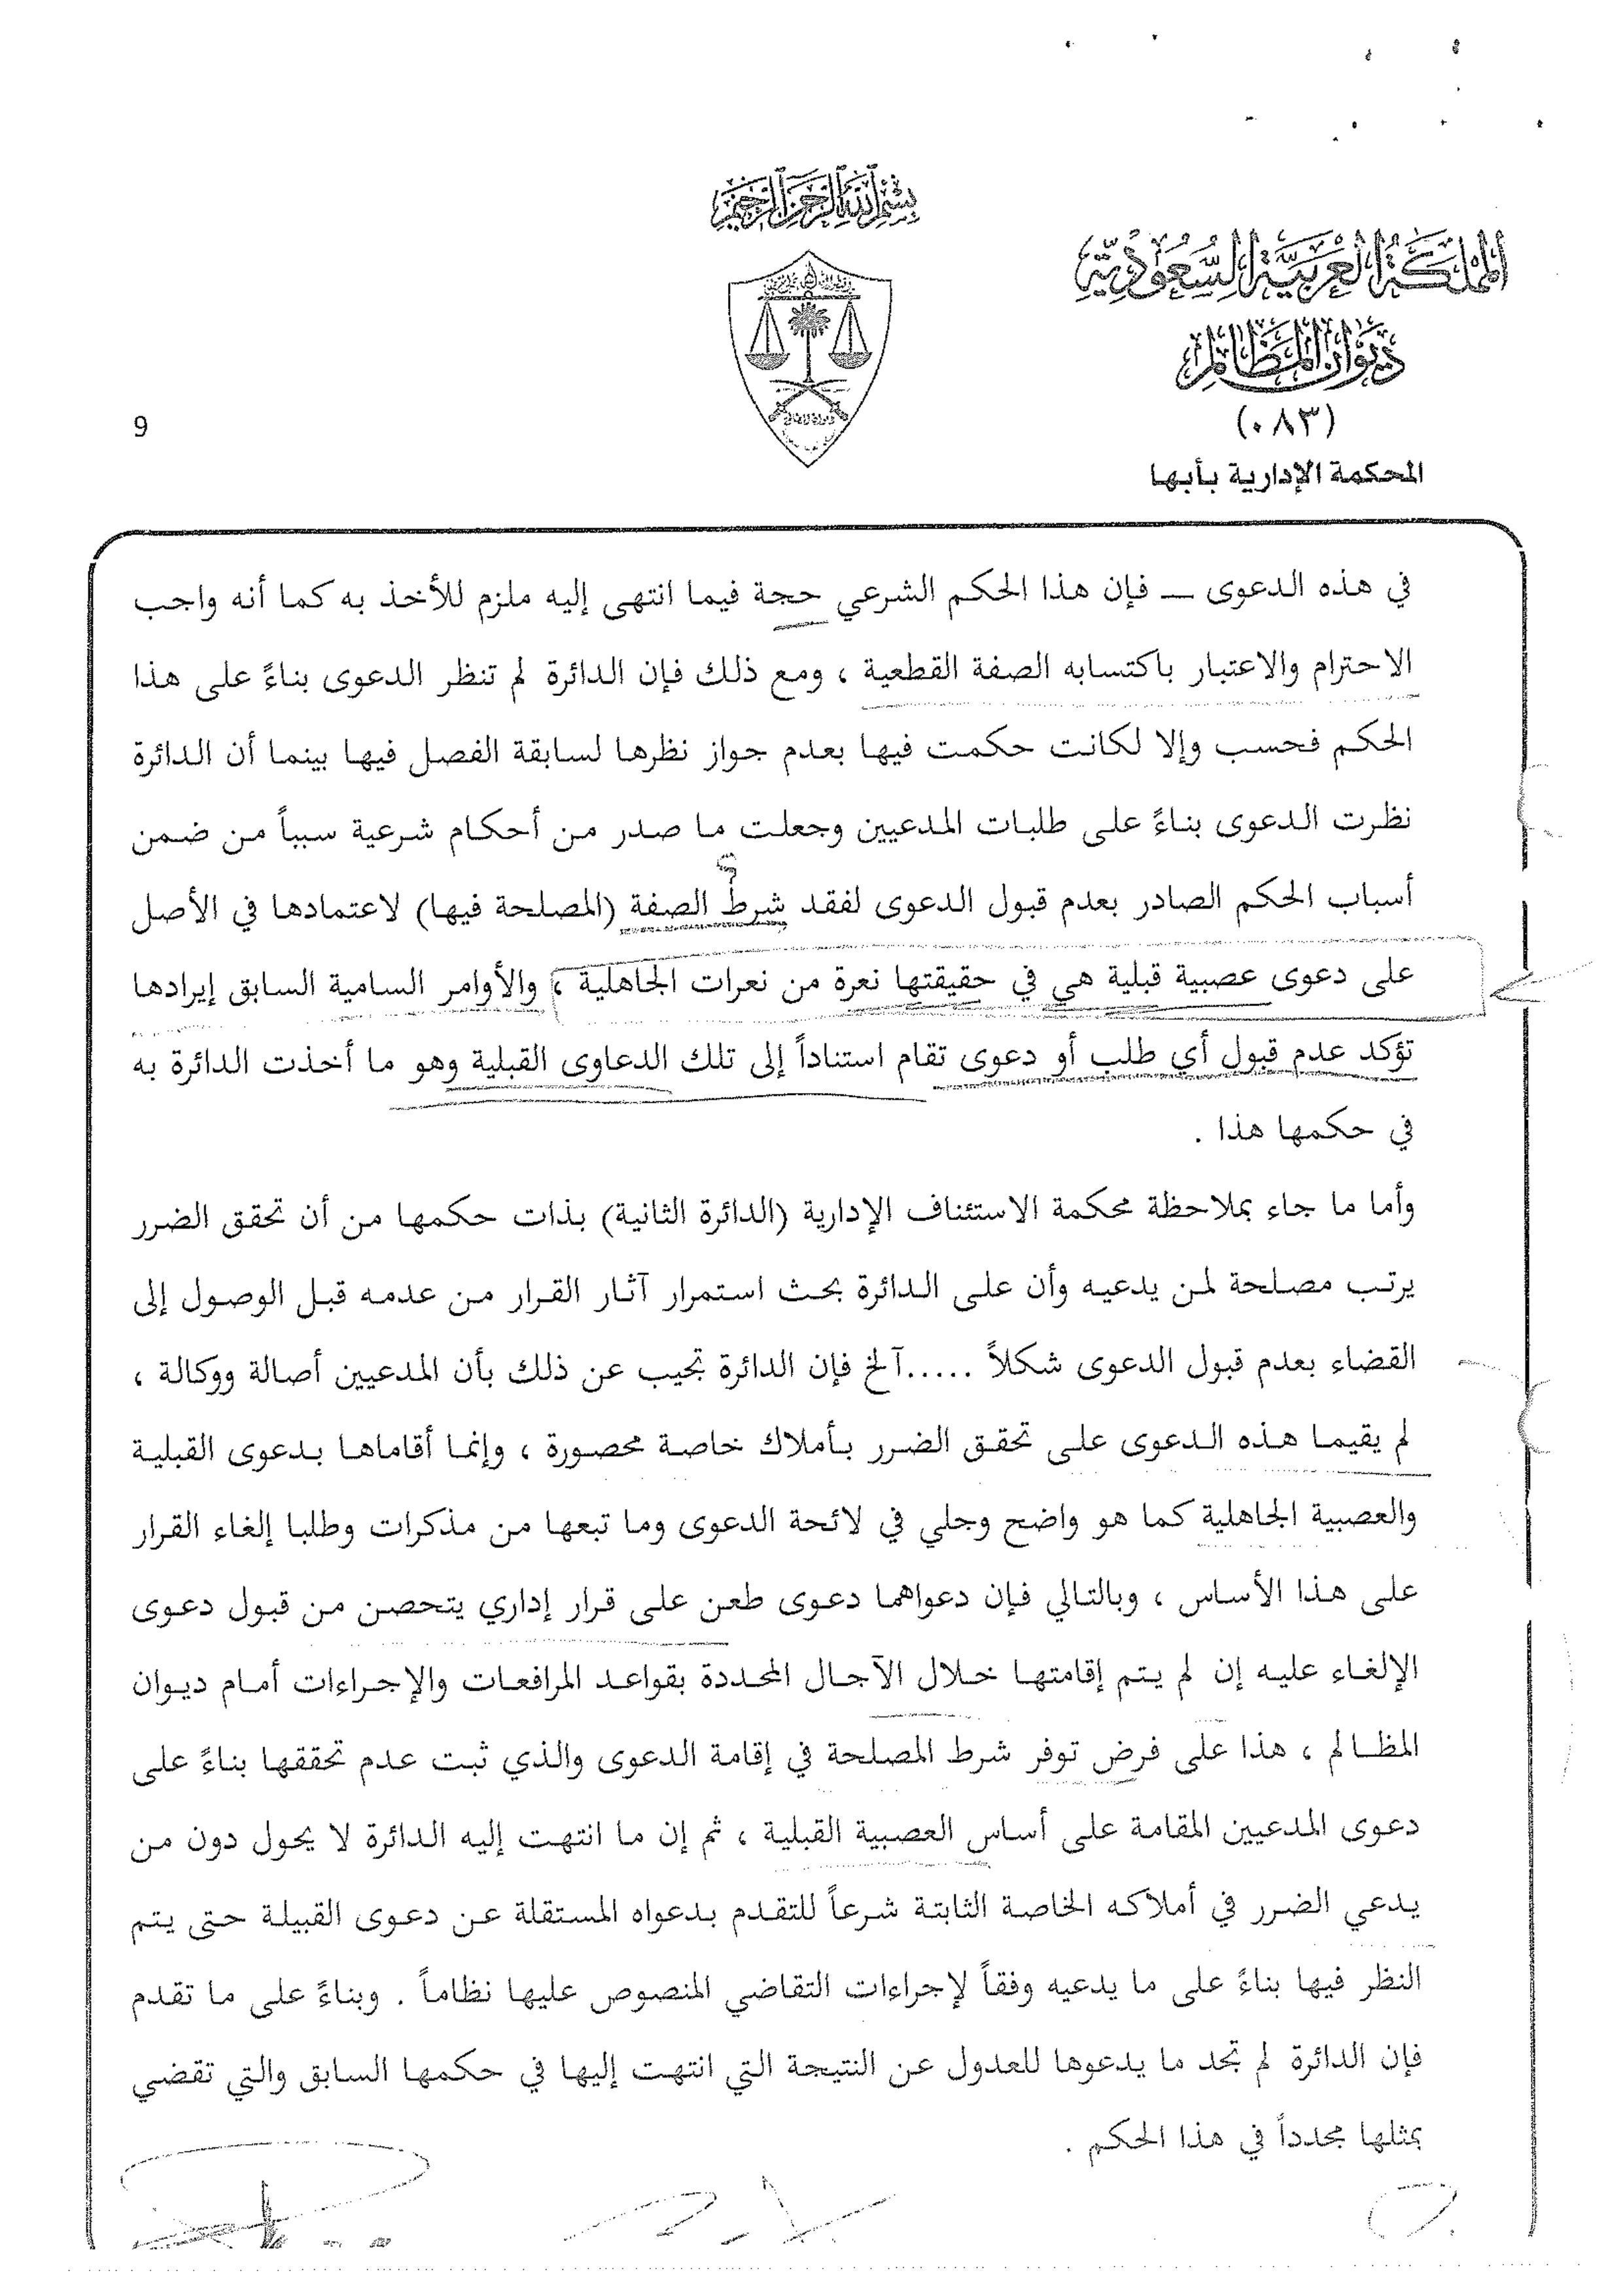 بسم الله الرحمن الرحيم
المملكة العربية السعودية
ديوان المظالم
(٠٨٣)
المحكمة الإدارية بأبها
9
في هذه الدعوى — فإن هذا الحكم الشرعي حجة فيما انتهى إليه ملزم للأخذ به كما أنه واجب
الاحترام والاعتبار باكتسابه الصفة القطعية ، ومع ذلك فإن الدائرة لم تنظر الدعوى بناءً على هذا
الحكم فحسب وإلا لكانت حكمت فيها بعدم جواز نظرها لسابقة الفصل فيها بينما أن الدائرة
نظرت الدعوى بناءً على طلبات المدعيين وجعلت ما صدر من أحكام شرعية سبباً من ضمن
أسباب الحكم الصادر بعدم قبول الدعوى لفقد شرط الصفة (المصلحة فيها) لاعتمادها في الأصل
على دعوى عصبية قبلية هي في حقيقتها نعرة من نعرات الجاهلية ، والأوامر السامية السابق إيرادها
تؤكد عدم قبول أي طلب أو دعوى تقام استناداً إلى تلك الدعاوى القبلية وهو ما أخذت الدائرة به
في حكمها هذا .
وأما ما جاء بملاحظة محكمة الاستئناف الإدارية (الدائرة الثانية) بذات حكمها من أن تحقق الضرر
يرتب مصلحة لمن يدعيه وأن على الدائرة بحث استمرار آثار القرار من عدمه قبل الوصول إلى
القضاء بعدم قبول الدعوى شكلاً .....آلخ فإن الدائرة تجيب عن ذلك بأن المدعيين أصالة ووكالة ،
لم يقيما هذه الدعوى على تحقق الضرر بأملاك خاصة محصورة ، وإنما أقاماها بدعوى القبلية
والعصبية الجاهلية كما هو واضح وجلي في لائحة الدعوى وما تبعها من مذكرات وطلبا إلغاء القرار
على هذا الأساس ، وبالتالي فإن دعواهما دعوى طعن على قرار إداري يتحصن من قبول دعوى
الإلغاء عليه إن لم يتم إقامتها خلال الآجال المحددة بقواعد المرافعات والإجراءات أمام ديوان
المظالم ، هذا على فرض توفر شرط المصلحة في إقامة الدعوى والذي ثبت عدم تحققها بناءً على
دعوى المدعيين المقامة على أساس العصبية القبلية ، ثم إن ما انتهت إليه الدائرة لا يحول دون من
يدعي الضرر في أملاكه الخاصة الثابتة شرعاً للتقدم بدعواه المستقلة عن دعوى القبيلة حتى يتم
النظر فيها بناءً على ما يدعيه وفقاً لإجراءات التقاضي المنصوص عليها نظاماً . وبناءً على ما تقدم
فإن الدائرة لم تجد ما يدعوها للعدول عن النتيجة التي انتهت إليها في حكمها السابق والتي تقضي
بمثلها مجدداً في هذا الحكم .